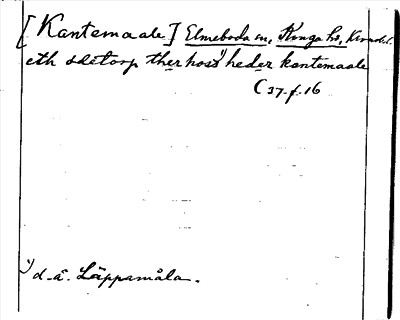 [Kantemaale] Elmeboda sn, Kinga hd, Kronobl.
eth sätorp ther hoss¹⁾ heder kantemaale
C 37 f. 16
¹⁾ d.ä. Läppamåla.